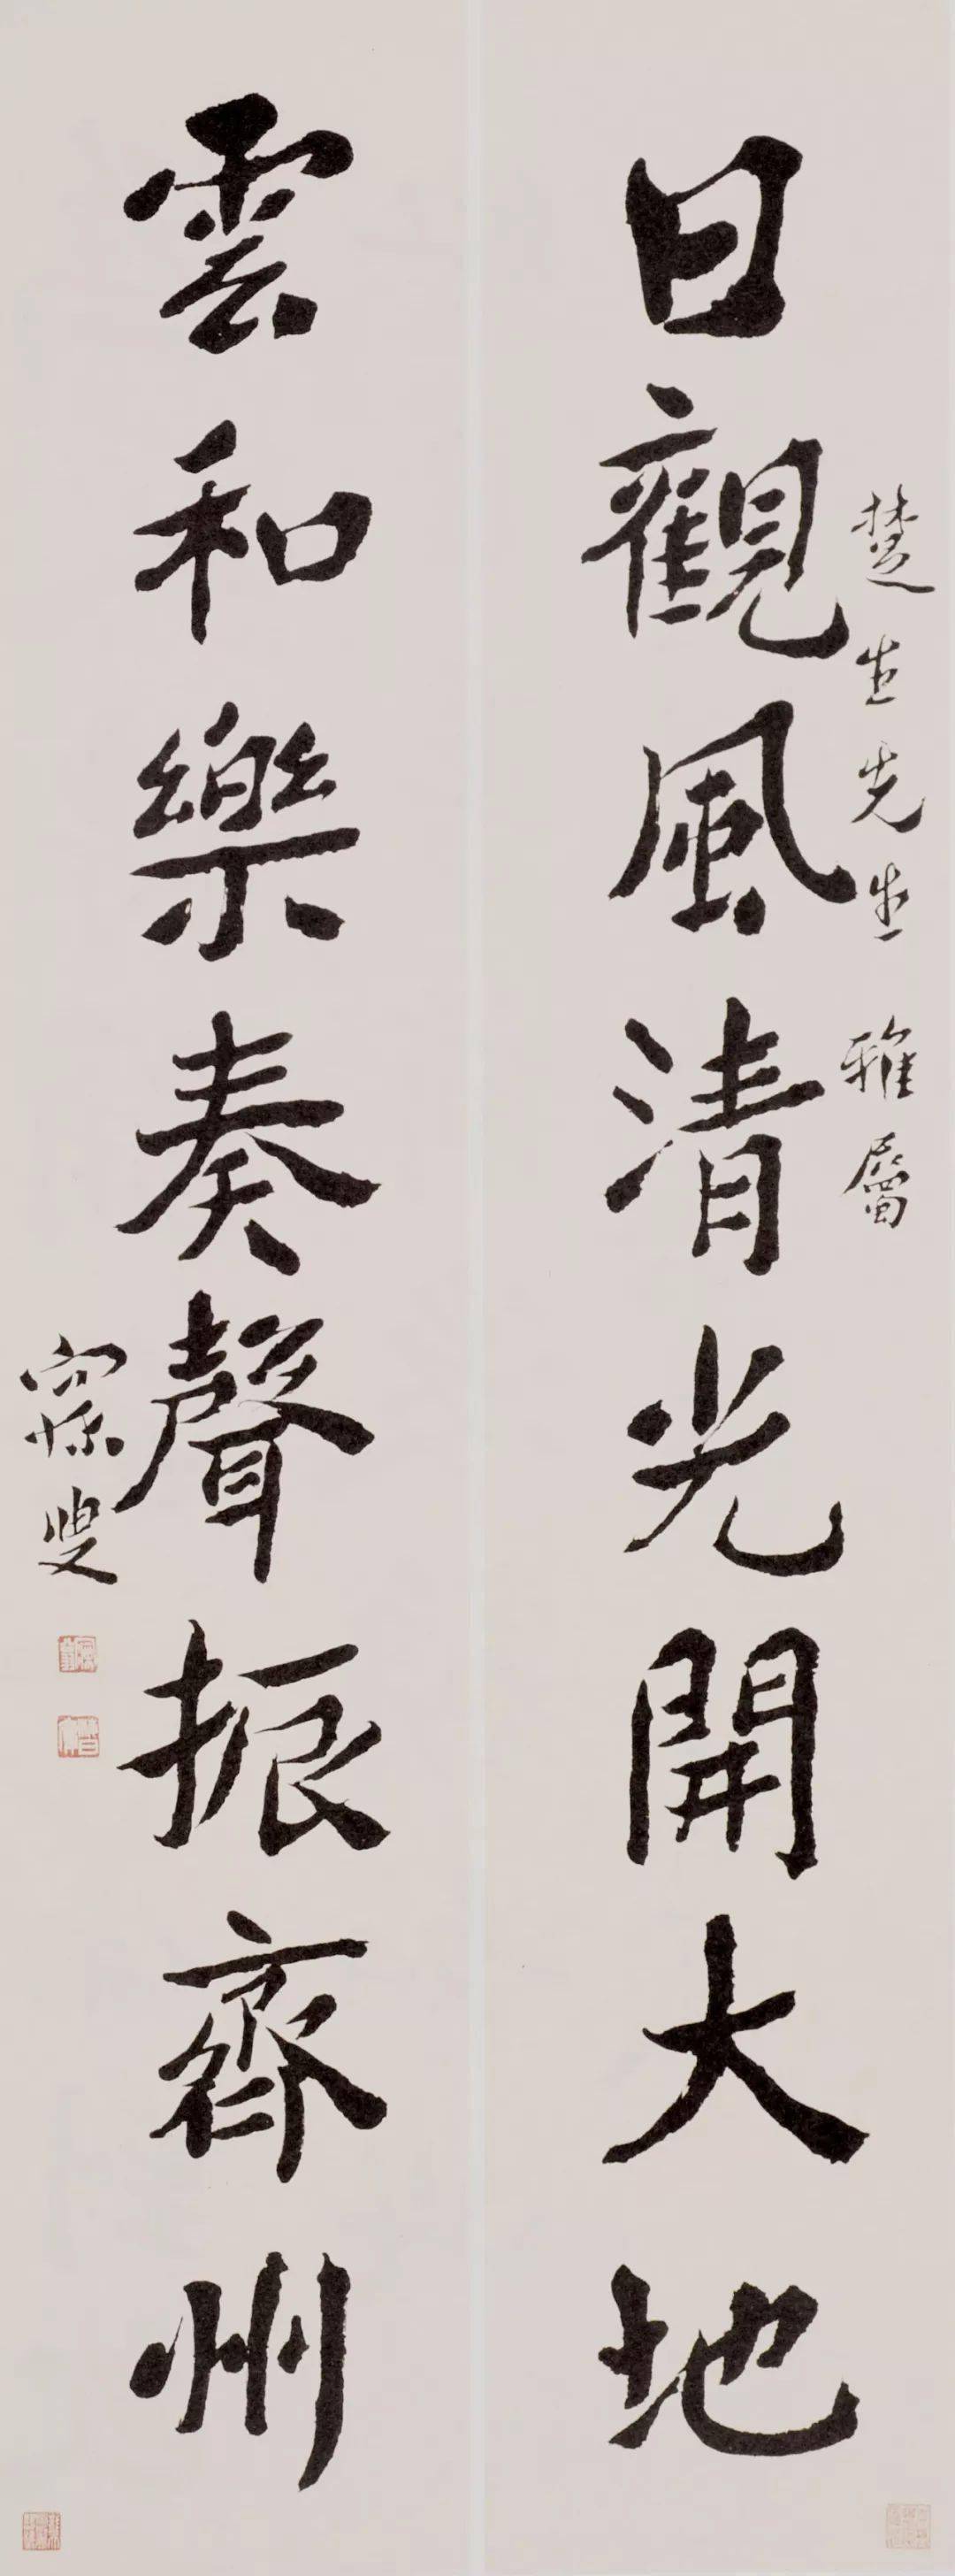 楚生先生雅屬
日觀風清光開大地
雲和樂奏聲振齊州
寐叟